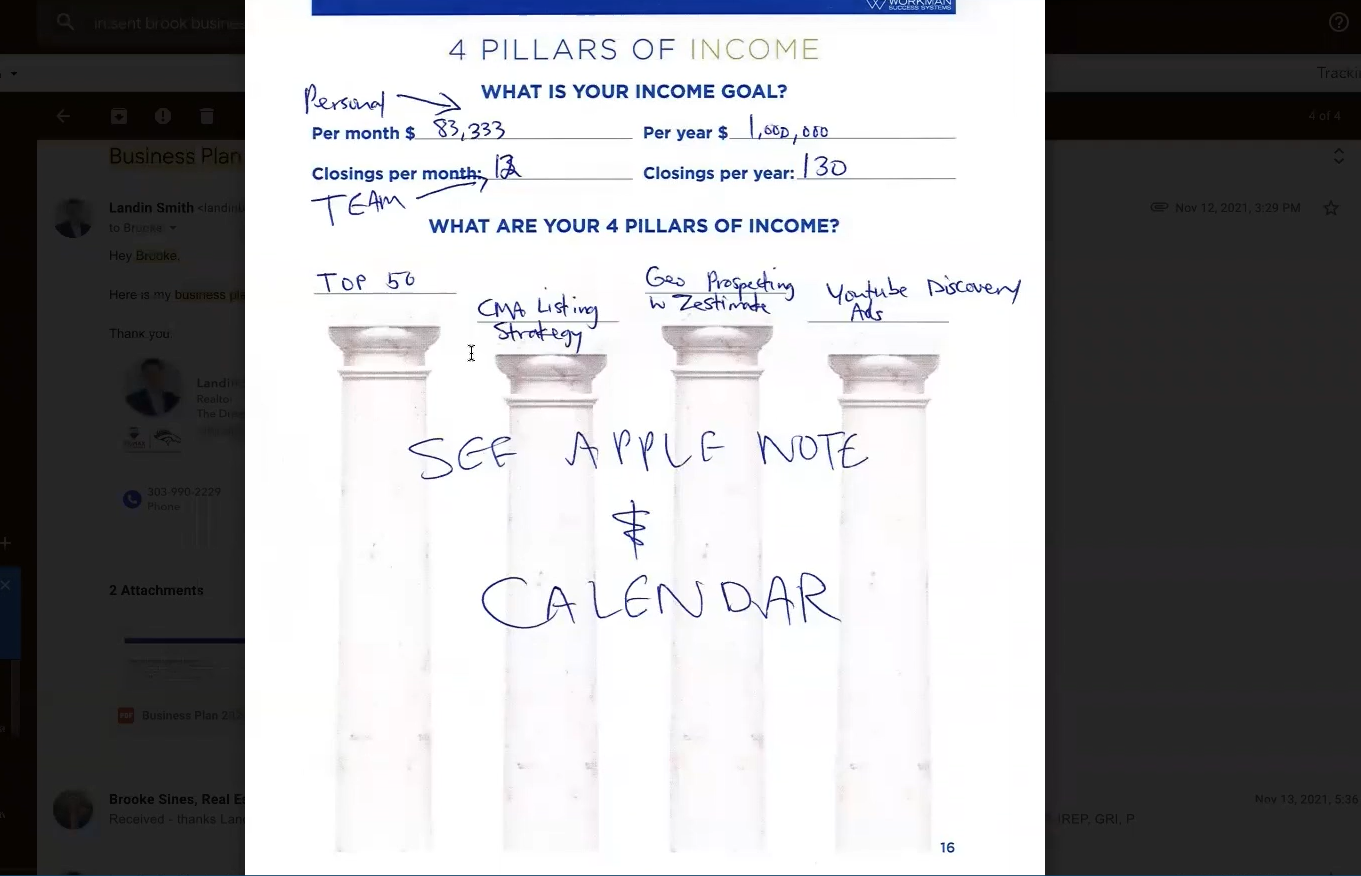 in:sent brook busines
Tracki
4 of 4
WORKMAN
SUCCESS SYSTEMS
4 PILLARS OF INCOME
Personal
WHAT IS YOUR INCOME GOAL?
Per month $ 83,333
Per year $ 1,000,000
Closings per month: 12
Closings per year: 130
TEAM
WHAT ARE YOUR 4 PILLARS OF INCOME?
TOP 50
CMA Listing
Strategy
Geo Prospecting
w Zestimate
Youtube Discovery
Ads
SEE APPLE NOTE
&
CALENDAR
16
Business Plan
Landin Smith <landin
Nov 12, 2021, 3:29 PM
to Brooke
Hey Brooke,
Here is my business pl
Thank you:
Landi
Realto
The Dre
303-990-2229
Phone
2 Attachments
PDF Business Plan
Brooke Sines, Real E
Nov 13, 2021, 5:36
Received - thanks Lan
REP, GRI, P